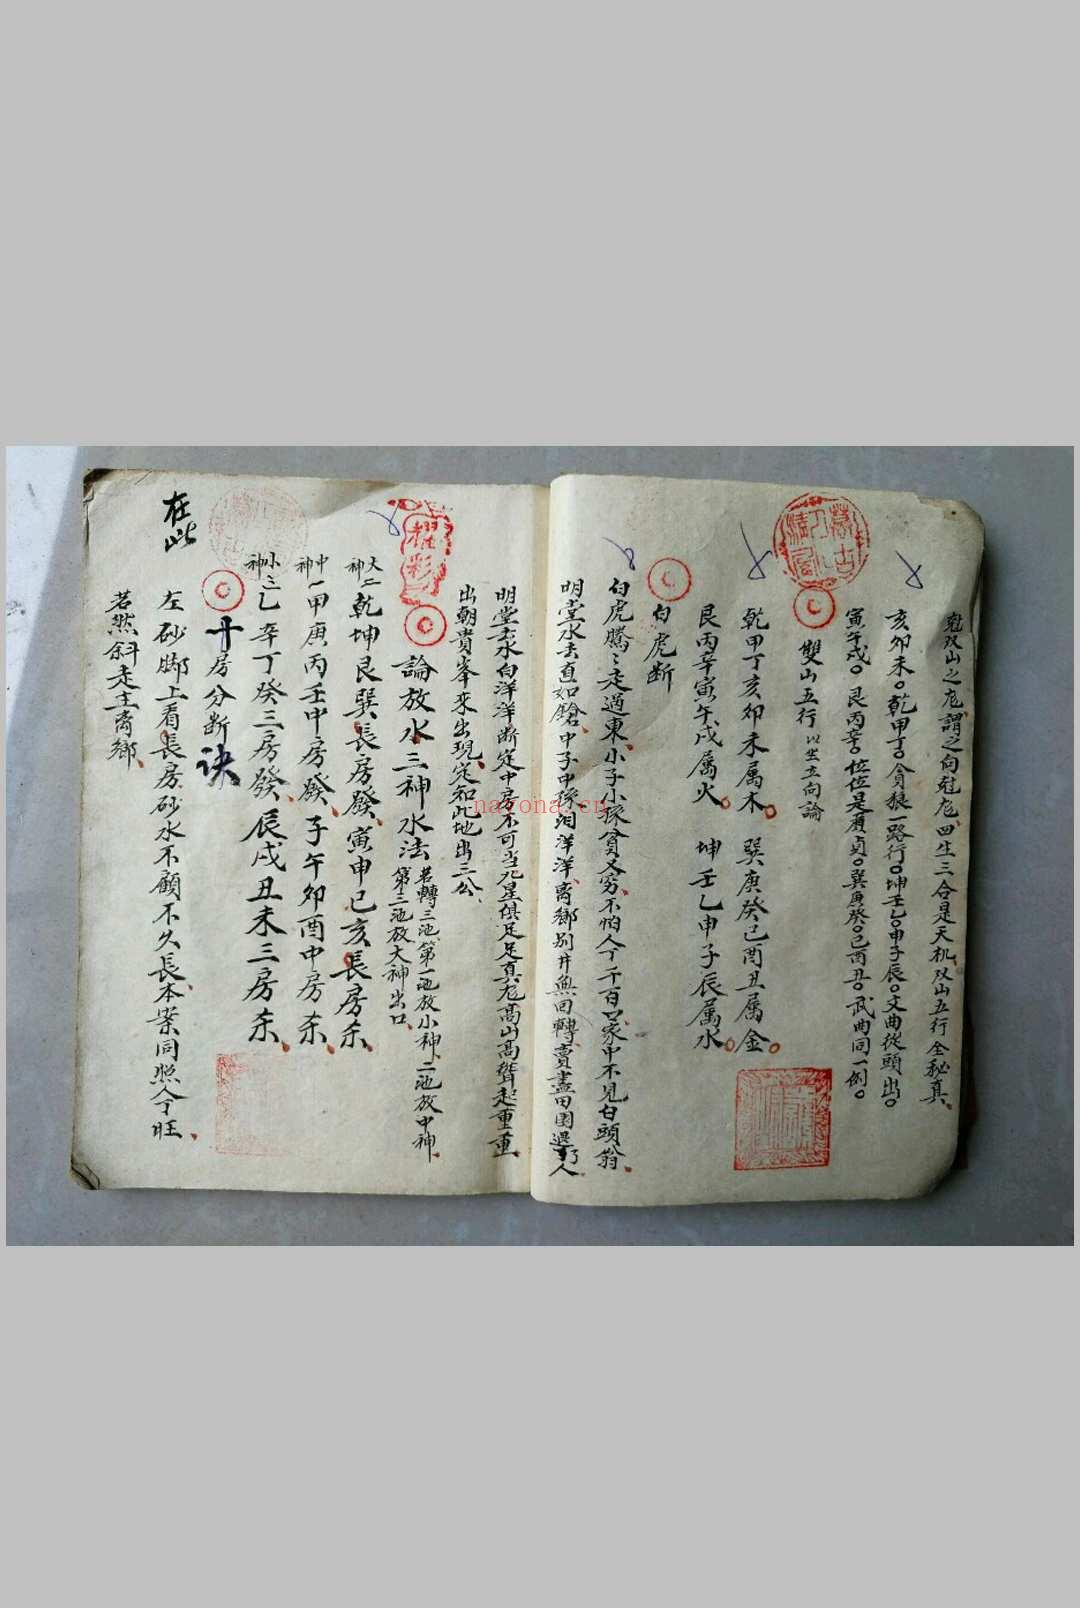 双山之龙謂之向尅龙四生三合是天机双山五行全秘真
亥卯未。乾甲丁。貪狼一路行。坤壬乙。申子辰。文曲從頭出。
寅午戌。艮丙辛。位位是廉貞。巽庚癸。巳酉丑。武曲同一例。
雙山五行 以坐立向論
乾甲丁亥卯未属木。 巽庚癸巳酉丑属金。
艮丙辛寅午戌属火。 坤壬乙申子辰属水。
白虎断
白虎騰〻走過東、小子小孫貧又穷、不怕人丁千百口、家中不見白頭翁、
明堂水去直如鎗、中子中孫泪洋洋、离鄉别井無回轉、賣盡田園退了人
明堂去水向洋洋、断定中房不可当、九星俱足足真龙、高山高聳起重重、
出朝貴峯來出現、定知此地出三公、
論放水三神水法 若轉三池、第一池放小神、二池放中神、
第三池放大神出口、
大神 二乾坤艮巽、長房發、寅申巳亥、長房杀、
中神 一甲庚丙壬中房發、子午卯酉中房杀、
小神 三乙辛丁癸三房發、辰戌丑未三房杀、
十房分断诀
在此
左砂脚上看長房、砂水不顧不久長、本案同照人丁旺、
若然斜走主离鄉、
耀彩
navona.cn